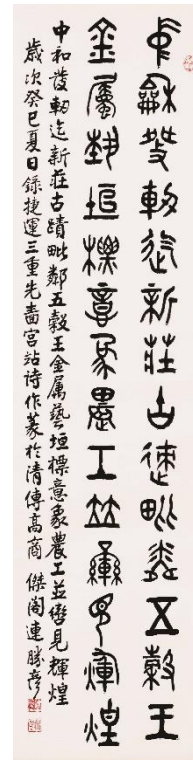 中龢發軔迄新莊古蹟毗鄰五穀王
金屬藝垣標意象農工並轡見煇煌
中和發軔迄新莊古蹟毗鄰五穀王金属藝垣標意象農工並轡見輝煌
歲次癸巳夏日錄捷運三重先嗇宮站詩作篆於清傳高商 傑閣連勝彥